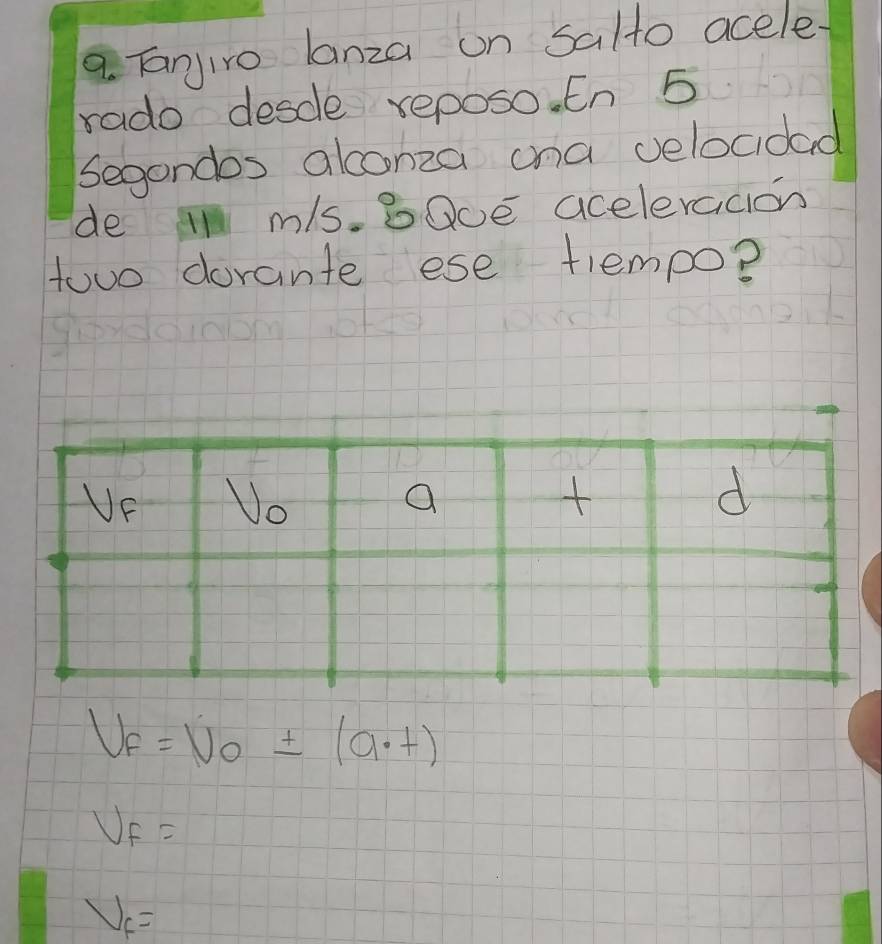 9. Tanjiro lanza un salto acele-
rado desde reposo. En 5
segundos alcanza una velocidad
de 11 m/s. ¿Qué aceleración
tuvo durante ese tiempo?
VF Vo a t d
VF = Vo ± (a·t)
VF =
VF =